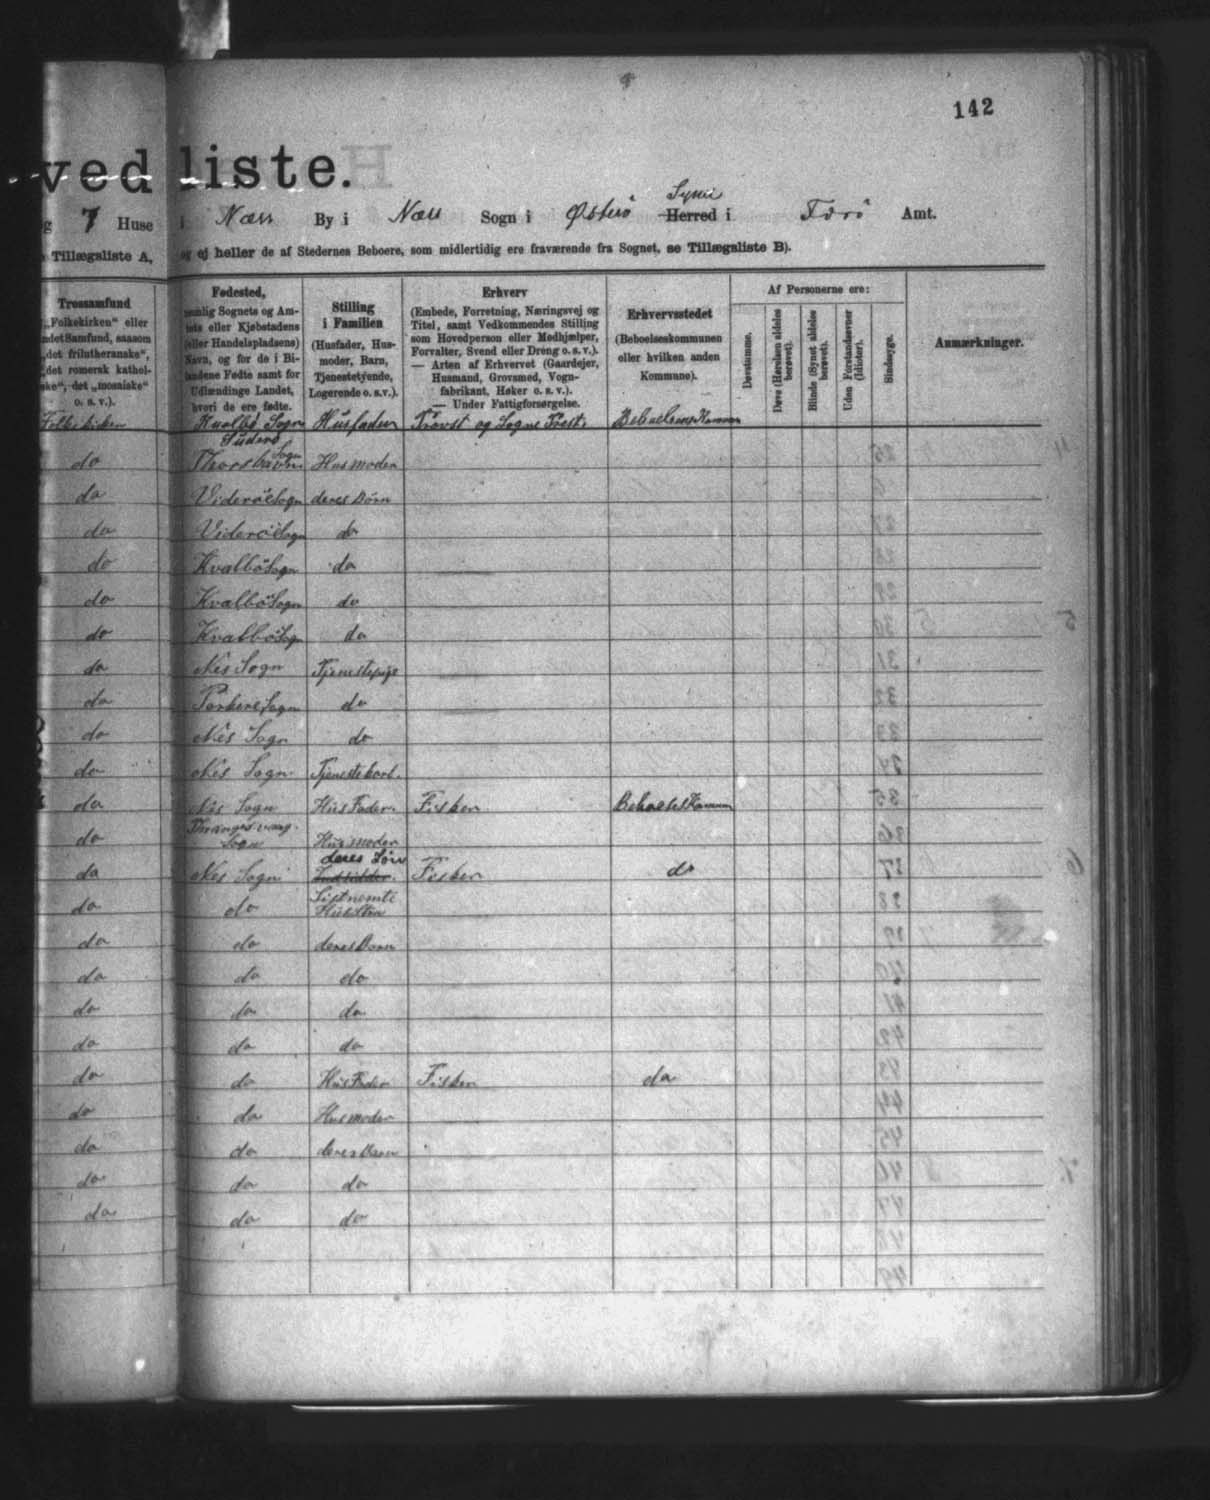 142
ved liste.
g 7 Huse i Næss By i Næss Sogn i Østerö Syssel Herred i Færö Amt.
Tillægsliste A, og ej heller de af Stedernes Beboere, som midlertidig ere fraværende fra Sognet, se Tillægsliste B).
Trossamfund
„Folkekirken“ eller
ndet Samfund, saasom
„det frilutheranske“,
„det romersk kathol-
ske“, det „mosaiske“
o. s. v.).
Fødested,
nemlig Sognets og Am-
tets eller Kjøbstadens
(eller Handelspladsens)
Navn, og for de i Bi-
landene Fødte samt for
Udlændinge Landet,
hvori de ere fødte.
Stilling
i Familien
(Husfader, Hus-
moder, Barn,
Tjenestetyende,
Logerende o. s. v.).
Erhverv
(Embede, Forretning, Næringsvej og
Titel, samt Vedkommendes Stilling
som Hovedperson eller Medhjælper,
Forvalter, Svend eller Dreng o. s. v.).
— Arten af Erhvervet (Gaardejer,
Husmand, Grovsmed, Vogn-
fabrikant, Høker o. s. v.).
— Under Fattigforsørgelse.
Erhvervsstedet
(Beboelseskommunen
eller hvilken anden
Kommune).
Af Personerne ere:
Døvstumme.
Døve (Hørelsen aldeles
berøvet).
Blinde (Synet aldeles
berøvet).
Uden Forstandsevner
(Idioter).
Sindssyge.
Anmærkninger.
Folkekirken Kvalbö Sogn Suderö Husfader Provst og Sogne Præst
do Thorshavn Sogn Husmoder
do Videröe Sogn deres Börn
do Videröe Sogn do
do Kvalbö Sogn do
do Kvalbö Sogn do
do Kvalbö Sogn do
do Nes Sogn Tjenestepige
do Porkere Sogn do
do Nes Sogn do
do Nes Sogn Tjenestekarl
do Nes Sogn HusFader Fisker
do Sogn Husmoder
do Nes Sogn deres Sön Fisker do
do do Sistnemte
do do deres Barn
do do do
do do do
do do do
do do HusFader Fisker do
do do Husmoder
do do deres Barn
do do do
do do do